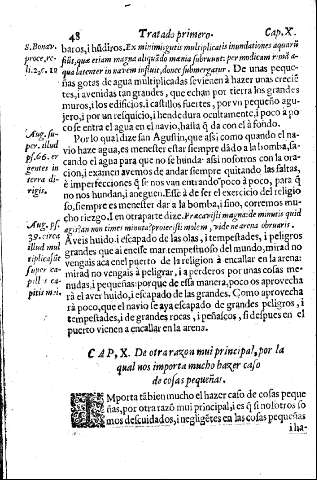 48 Tratado primero. Cap. X.
S. Bonav.
proce, re-
li. 2. c. 12
baros, i hūdiros. Ex minimis gutis multiplicatis inundationes aquarū
fiūt, quæ etiam magna aliquādo mania subruunt: per modicam rimā a-
qua latenter in navem influit, donec submergatur. De unas peque-
ñas gotas de agua multiplicadas se vienen à hazer unas crecie̅-
tes, i avenidas tan grandes, que echan por tierra los grandes
muros, i los edificios, i castillos fuertes, por vn pequeño agu-
jero, i por un resquicio, i hendedura ocultamente, i poco a po
co se entra el agua en el navio, hasta q̄ da con el à fondo.
Aug. su-
per. illud
ps. 66. er
gentes in
terra di-
rigis.
Por lo qual dize san Agustin, que assi como quando el na-
vio haze agua, es menester estar siempre dādo a la bomba, sa-
cando el agua para que no se hunda: assi nosotros con la ora-
cion, i examen avemos de andar siempre quitando las faltas,
è imperfecciones q̄ se nos van entrando poco à poco, para q̄
no nos hundan, i aneguen. Esse à de ser el exercicio del religio
so, siempre es menester dar a la bomba, i sino, corremos mu-
cho riezgo. I en otra parte dize. Præcavisti magna: de minutis quid
agis? an non times minuta? proiecisti molem, vide ne arena obruaris.
Aug. ps.
39. circa
illud mul
tiplicatisũt
super ca-
pill s ca-
pitis mei.
Aveis huido i escapado de las olas, i tempestades, i peligros
grandes que ai en esse mar tempestuoso del mundo, mirad no
vengais aca en el puerto de la religiō à encallar en la arena:
mirad no vengais à peligrar, i a perderos por unas cosas me-
nudas, i pequeñas: porque de essa manera, poco os aprovecha
rà el aver huido, i escapado de las grandes. Como aprovecha
rà poco, que el navio se aya escapado de grandes peligros, i
tempestades, i de grandes rocas, i peñascos, si despues en el
puerto vienen a encallar en la arena.
CAP. X. De otra razon mui principal, por la
qual nos importa mucho hazer caso
de cosas pequeñas.
IMporta tābien mucho el hazer caso de cosas peque
ñas, por otra razō mui principal, i es q̄ si nosotros so
mos descuidados, i negligētes en las cosas pequeñas
i ha-